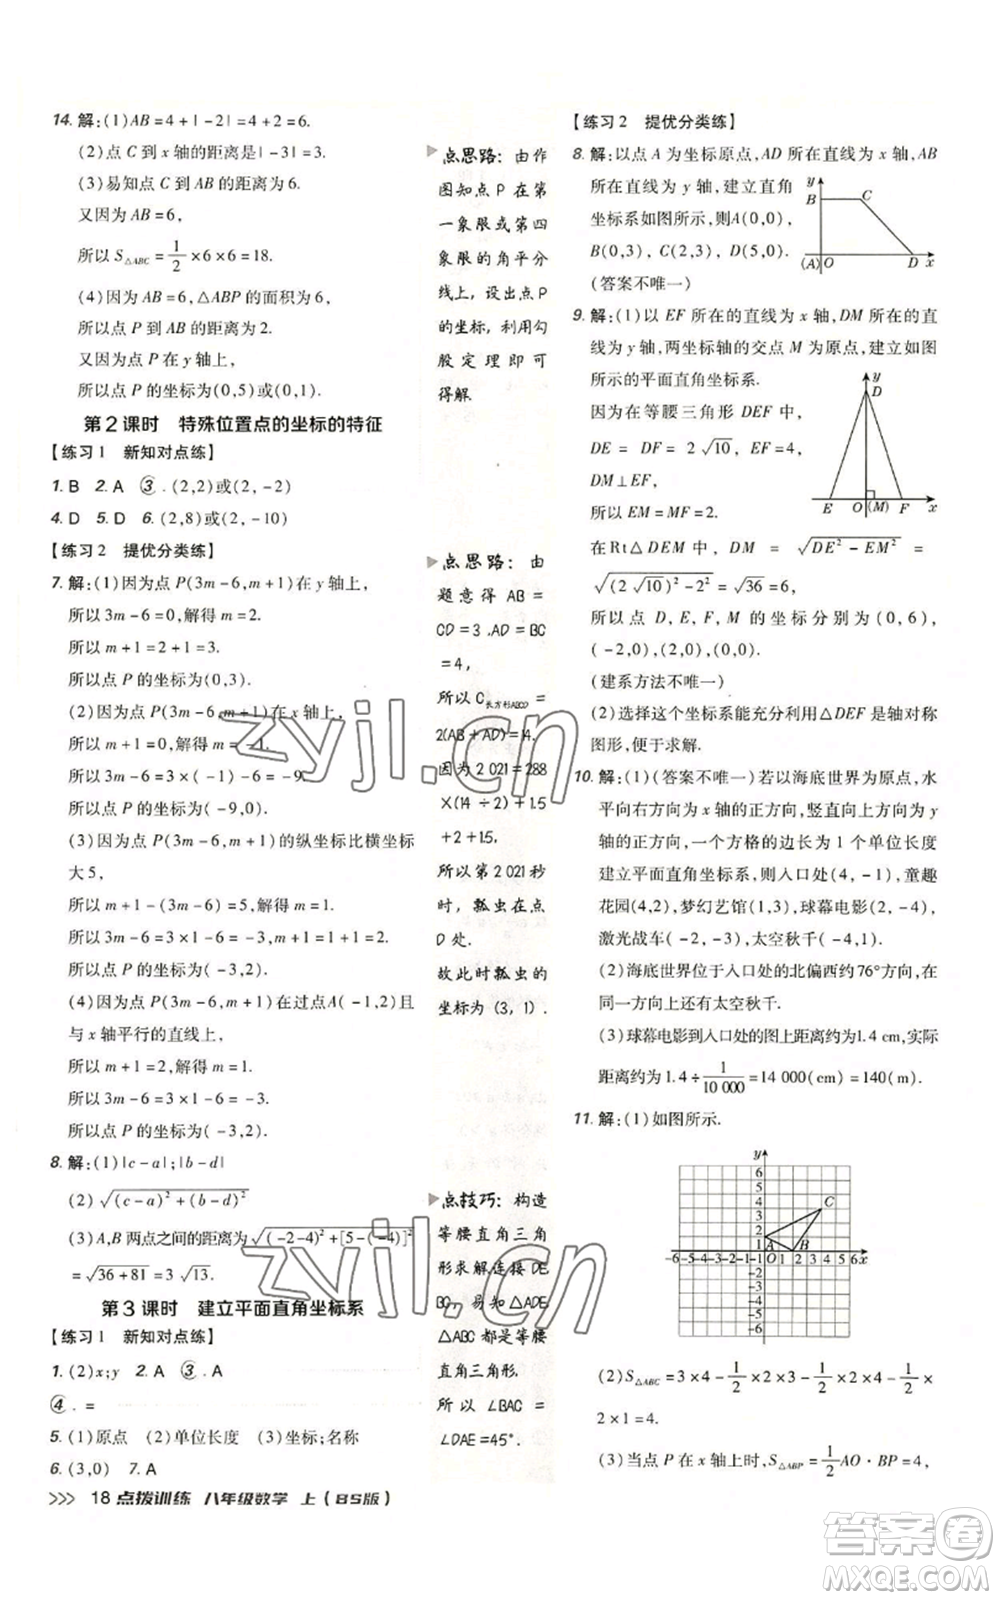 14. 解:(1)AB=4+|-2|=4+2=6.
(2)点 C 到 x 轴的距离是|-3|=3.
(3)易知点 C 到 AB 的距离为 6.
又因为 AB=6,
所以 S△ABC=1/2×6×6=18.
(4)因为 AB=6,△ABP 的面积为 6,
所以点 P 到 AB 的距离为 2.
又因为点 P 在 y 轴上,
所以点 P 的坐标为(0,5)或(0,1).
第 2 课时 特殊位置点的坐标的特征
【练习 1 新知对点练】
1. B 2. A ③. (2,2)或(2,-2)
4. D 5. D 6. (2,8)或(2,-10)
【练习 2 提优分类练】
7. 解:(1)因为点 P(3m-6,m+1)在 y 轴上,
所以 3m-6=0,解得 m=2.
所以 m+1=2+1=3.
所以点 P 的坐标为(0,3).
(2)因为点 P(3m-6,m+1)在 x 轴上,
所以 m+1=0,解得 m=-1.
所以 3m-6=3×(-1)-6=-9.
所以点 P 的坐标为(-9,0).
(3)因为点 P(3m-6,m+1)的纵坐标比横坐标
大 5,
所以 m+1-(3m-6)=5,解得 m=1.
所以 3m-6=3×1-6=-3,m+1=1+1=2.
所以点 P 的坐标为(-3,2).
(4)因为点 P(3m-6,m+1)在过点A(-1,2)且
与 x 轴平行的直线上,
所以 m+1=2,解得 m=1.
所以 3m-6=3×1-6=-3.
所以点 P 的坐标为(-3,2).
8. 解:(1)|c-a|;|b-d|
(2)√((c-a)²+(b-d)²)
(3)A,B 两点之间的距离为√((-2-4)²+[5-(-4)]²)
=√(36+81)=3√13.
第 3 课时 建立平面直角坐标系
【练习 1 新知对点练】
1. (2)x;y 2. A ③. A
④. =
5. (1)原点 (2)单位长度 (3)坐标;名称
6. (3,0) 7. A
>>> 18 点拨训练 八年级数学 上(BS版)
点思路:由作
图知点 P 在第
一象限或第四
象限的角平分
线上,设出点 P
的坐标,利用勾
股定理即可
得解.
点思路:由
题意得 AB=
CD=3,AD=BC
=4,
所以 C长方形ABCD=
2(AB+AD)=14.
因为 2 021=288
×(14÷2)+1.5
+2+1.5,
所以第 2 021 秒
时,瓢虫在点
D 处.
故此时瓢虫的
坐标为(3,1).
点技巧:构造
等腰直角三角
形求解连接DE,
BC,易知△ADE,
△ABC 都是等腰
直角三角形.
所以∠BAC=
∠DAE=45°.
【练习 2 提优分类练】
8. 解:以点 A 为坐标原点,AD 所在直线为 x 轴,AB
所在直线为 y 轴,建立直角
坐标系如图所示,则A(0,0),
B(0,3),C(2,3),D(5,0).
(答案不唯一)
y
B C
(A) O D x
9. 解:(1)以 EF 所在的直线为 x 轴,DM 所在的直
线为 y 轴,两坐标轴的交点 M 为原点,建立如图
所示的平面直角坐标系.
因为在等腰三角形 DEF 中,
DE=DF=2√10,
DM⊥EF,
所以 EM=MF=2.
y
D
E O (M) F x
在 Rt△DEM 中,DM=√(DE²-EM²)=
√((2√10)²-2²)=√36=6.
所以点 D,E,F,M 的坐标分别为(0,6),
(-2,0),(2,0),(0,0).
(建系方法不唯一)
(2)选择这个坐标系能充分利用△DEF 是轴对称
图形,便于求解.
10. 解:(1)(答案不唯一)若以海底世界为原点,水
平向右方向为 x 轴的正方向,竖直向上方向为 y
轴的正方向,一个方格的边长为 1 个单位长度
建立平面直角坐标系,则入口处(4,-1),童趣
花园(4,2),梦幻艺馆(1,3),球幕电影(2,-4),
激光战车(-2,-2),太空秋千(-4,1).
(2)海底世界位于入口处的北偏西约76°方向,在
同一方向上还有太空秋千.
(3)球幕电影到入口处的图上距离约为1.4 cm,实际
距离约为1.4÷1/10 000=14 000(cm)=140(m).
11. 解:(1)如图所示.
y
6
5
4
3
2
1
C
A
B
-6-5-4-3-2-1 O 1 2 3 4 5 6x
-1
-2
-3
-4
-5
-6
(2)S△ABC=3×4-1/2×2×3-1/2×2×4-1/2×
2×1=4.
(3)当点 P 在 x 轴上时,S△ABP=1/2 AO·BP=4,
zyjl.cn
zyjl.cn
答案圈
MXQE.COM